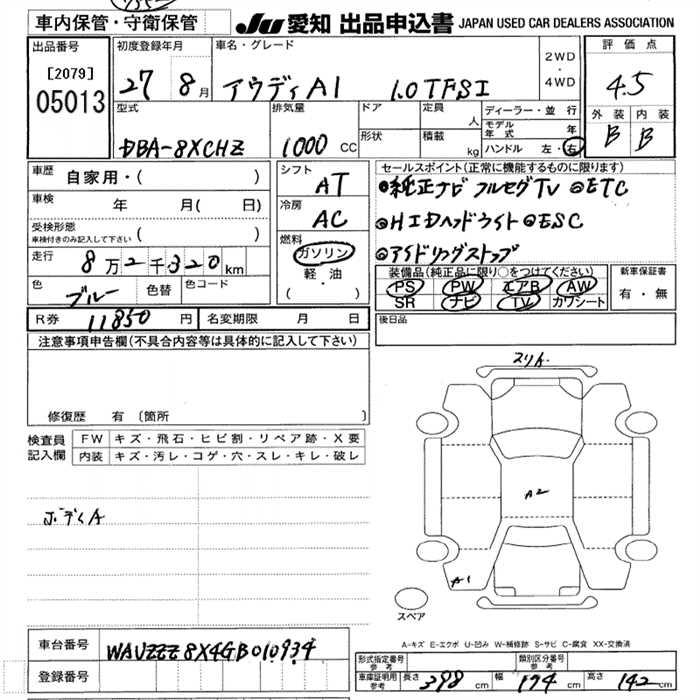 車内保管・守衛保管
JU 愛知 出品申込書 JAPAN USED CAR DEALERS ASSOCIATION
出品番号
[2079]
05013
初度登録年月
27 8月
車名・グレード
アウディA1 1.0TFSI
2WD
・
4WD
評価点
4.5
外装 内装
B B
型式
DBA-8XCHZ
排気量
1000 CC
ドア
形状
定員 人
積載 kg
ディーラー・並行
モデル年式 年
ハンドル 左・右
車歴 自家用・( )
車検 年 月( 日)
受検形態
車検付きのみ記入して下さい ( )
走行 8万2千320km
色 ブルー 色替 色コード
シフト
AT
冷房
AC
燃料
ガソリン
軽・油
( ・ )
セールスポイント(正常に機能するものに限ります)
●純正ナビ フルセグTV ◎ETC
◎HIDヘッドライト◎ESC
◎アイドリングストップ
装備品(純正品に限り○をつけてください)
PS PW エアB AW
SR ナビ TV カワシート
新車保証書
有・無
R券 11850円 名変期限 月 日
後日品
注意事項申告欄(不具合内容等は具体的に記入して下さい)
修復歴 有 〔箇所 〕
検査員記入欄
FW キズ・飛石・ヒビ割・リペア跡・X要
内装 キズ・汚レ・コゲ・穴・スレ・キレ・破レ
ボディA
スリキ
A2
A1
スペア
A-キズ E-エクボ U-凹み W-補修跡 S-サビ C-腐食 XX-交換済
車台番号 WAUZZZ8X4GB010934
登録番号
形式指定番号
参考
類別区分番号
参考
車庫証明用
参考
長さ 398cm 幅 174cm 高さ 142cm